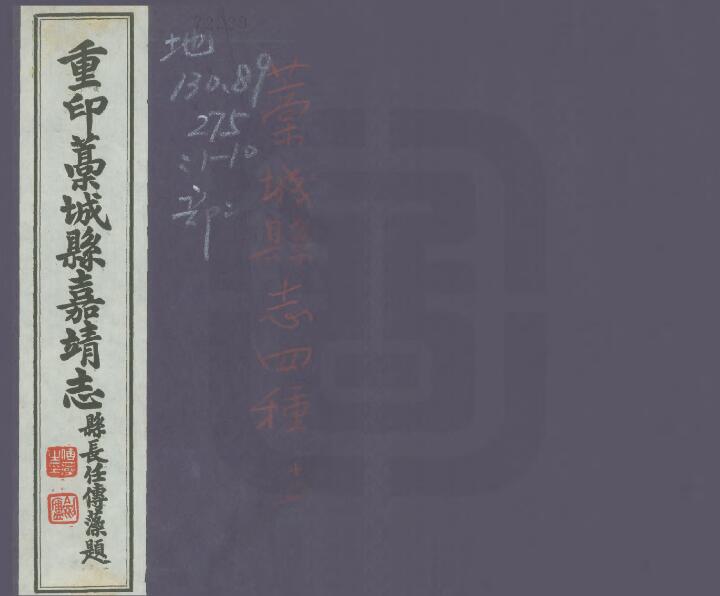 重印藁城縣嘉靖志
縣長任傳藻題
地
130.89
275
:1-10
部二
藁城縣志四種 十一
72339